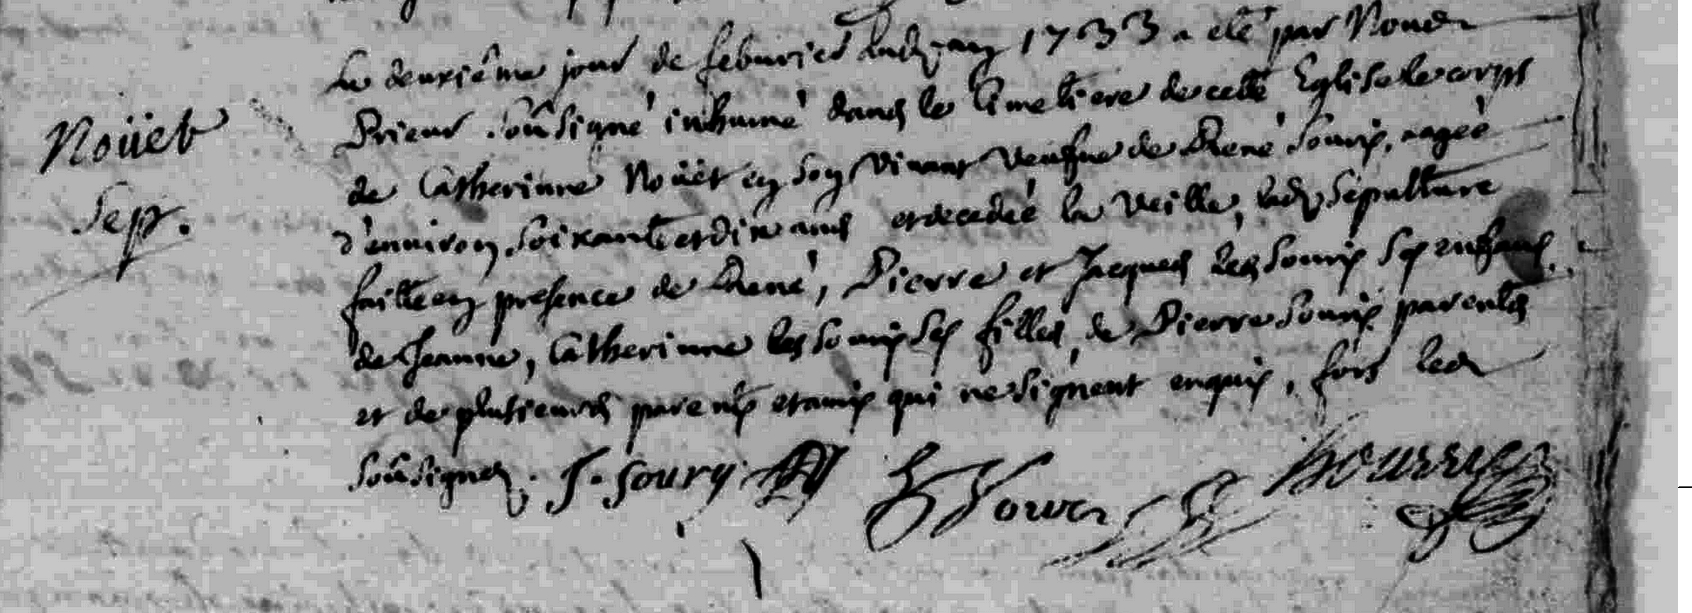 Noüet
Sep.
Le deuxième jour de feburier audj an 1733 a eté par Nous
Prieur soûsigné inhumé dans le Cimetiere de cette Eglise le corps
de Catherinne Noüet en son vivant veufue de René Souris, aagée
d'enuiron soixante et dix ans et decedée la veille, ladj sepulture
faitte en presence de René, Pierre et Jacques les Souris ses enfans,
de Jeanne, Catherinne les Souris ses filles, de Pierre Souris parentés
et de plusieurs parents et amis qui ne signent enquis, fors les
soûsignes. J. Soury